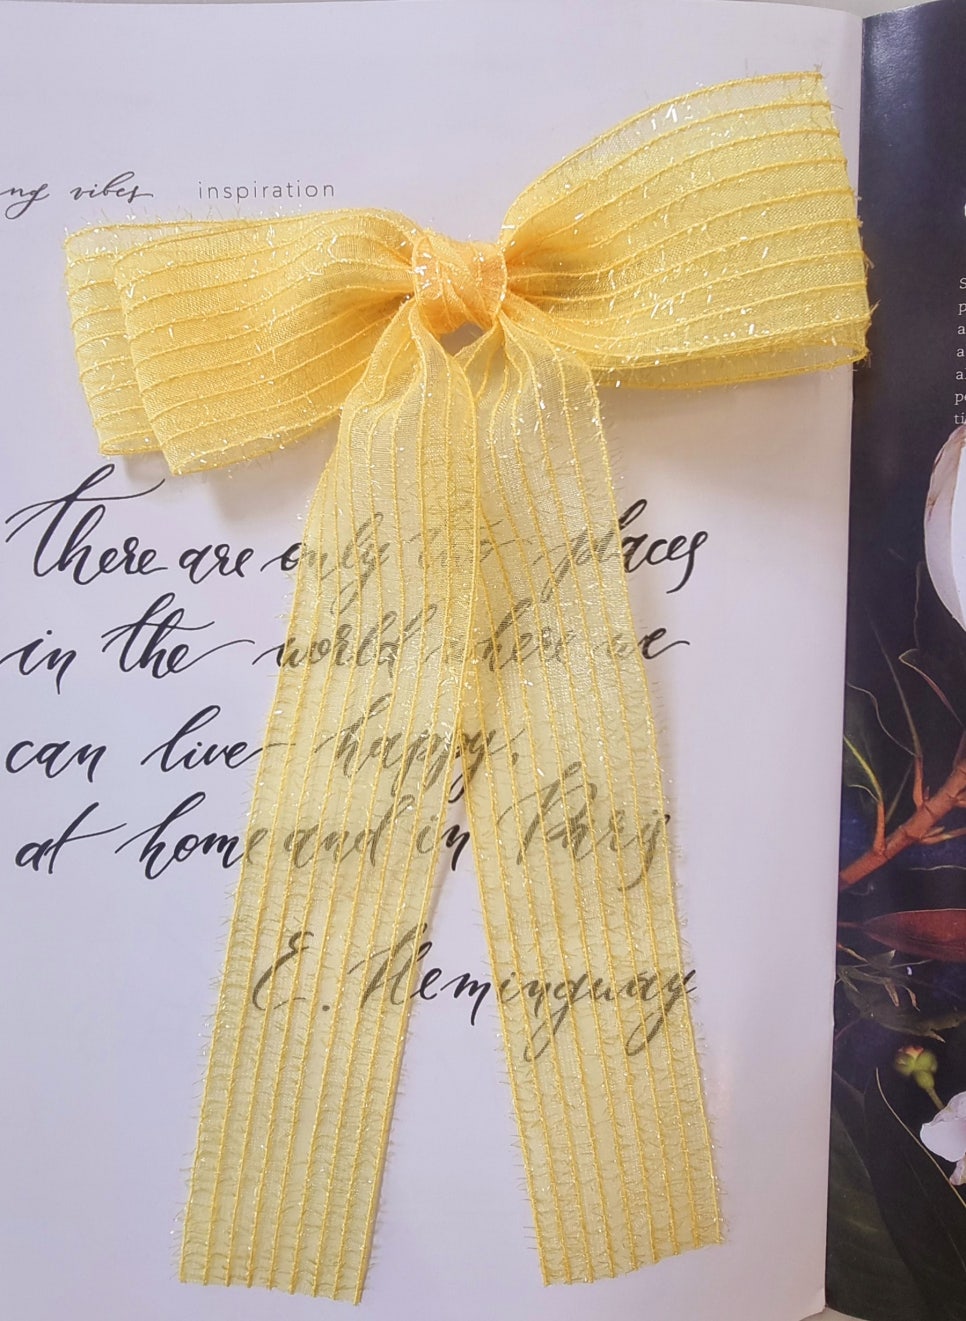 ng vibes inspiration
there are only two places
in the world where we
can live happy,
at home and in Paris
E. Hemingway